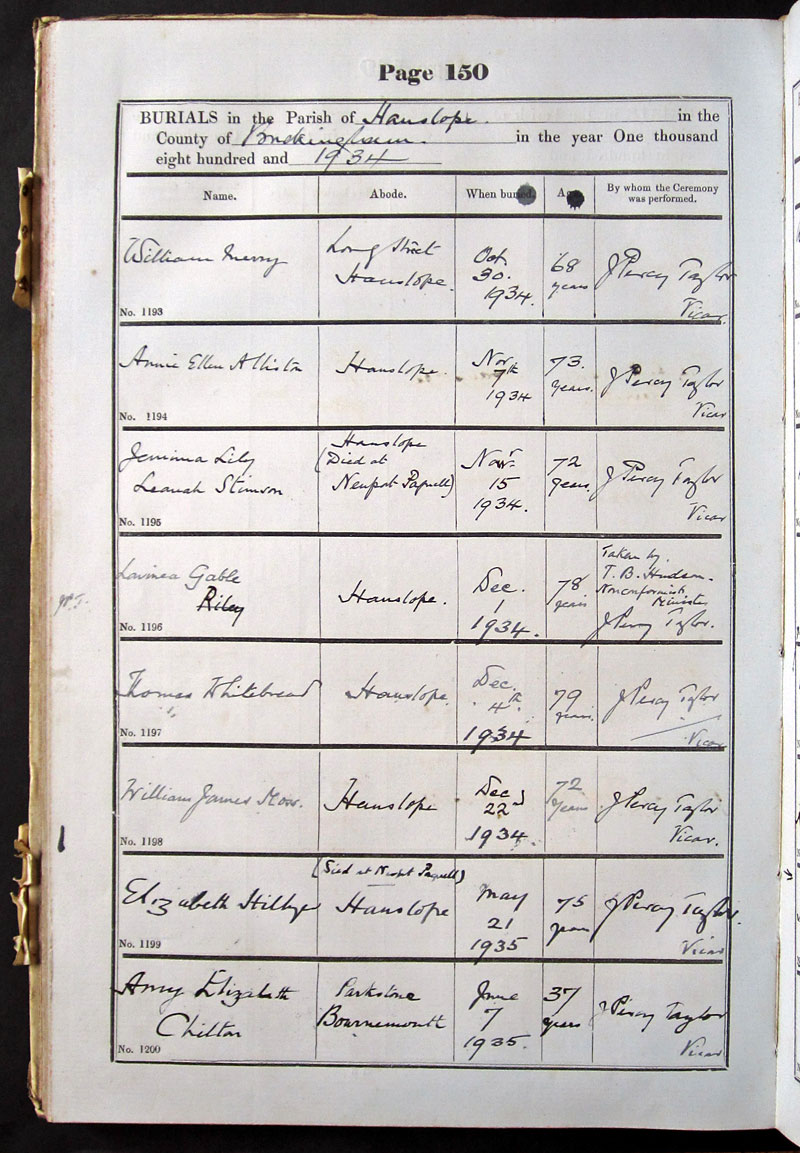 Page 150
BURIALS in the Parish of Hanslope in the
County of Buckingham. in the year One thousand
eight hundred and 1934
Name. Abode. When buried. Age. By whom the Ceremony was performed.
William Merry
Long Street
Hanslope.
Oct.
30.
1934.
68
years
J Percy Taylor
Vicar.
No. 1193
Annie Ellen Alliston
Hanslope.
Nov.
7th
1934
73.
years.
J Percy Taylor
Vicar
No. 1194
Jemima Lily
Leanah Stimson
Hanslope
(Died at
Newport Pagnell)
Novr.
15
1934.
72
years.
J Percy Taylor
Vicar
No. 1195
Lavinea Gable
Riley
Hanslope.
Dec.
1
1934.
78
years
Taken by
T. B. Hudson.
Nonconformist
Minister
J Percy Taylor.
No. 1196
Thomas Whitebread
Hanslope.
Dec.
4th
1934
79
years.
J Percy Taylor
Vicar
No. 1197
William James
Hanslope
Dec
22nd
1934.
72
years
J Percy Taylor
Vicar.
No. 1198
Elizabeth
(Died at Newport Pagnell)
Hanslope
May
21
1935
75
years
J Percy Taylor.
Vicar
No. 1199
Amy Elizabeth
Chilton
Parkstone
Bournemouth
June
7
1935.
37
years
J Percy Taylor
Vicar
No. 1200